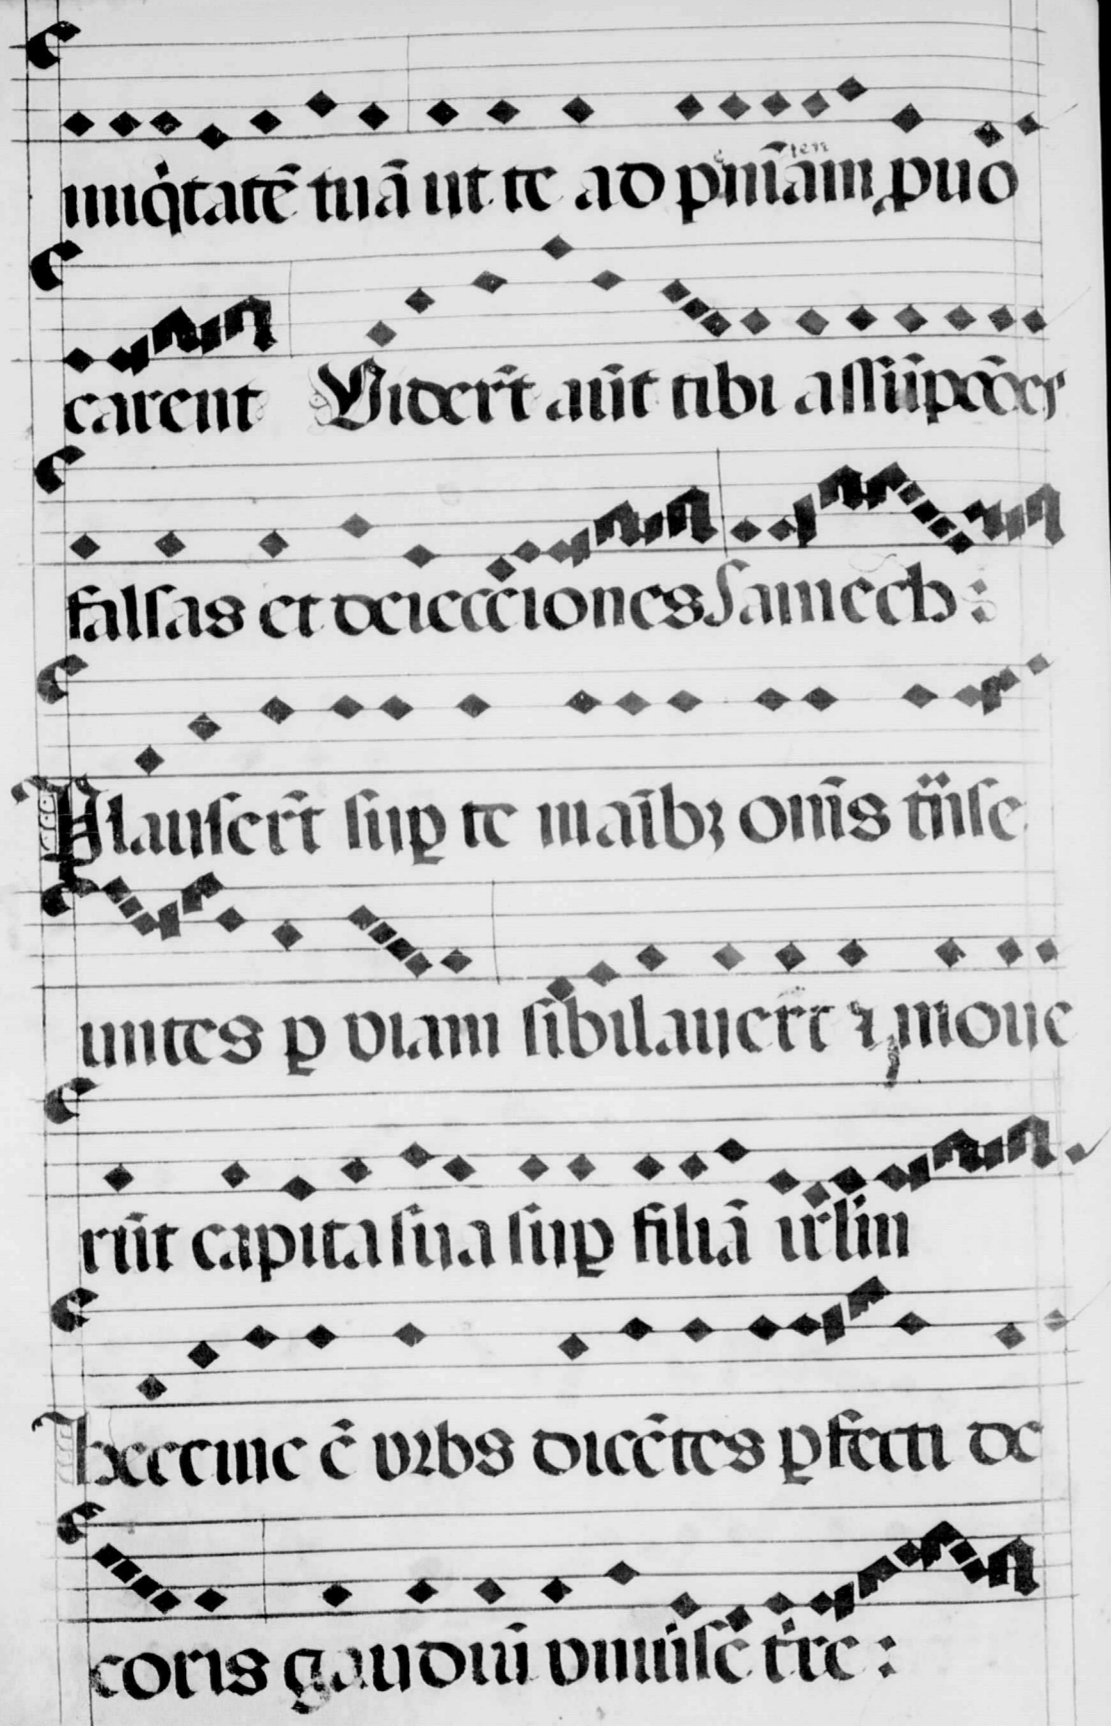 iniq̇tatē tuā ut te ad pn̄iam ꝓuo
carent Viderūt aūt tibi assūpcōēs
falsas et deiecciones Samech:
Plauserūt suꝑ te maībꝫ om̄s trāse
untes ꝑ viam sibilaverūt ⁊ move
rūt capita sua suꝑ filiā irlm̄
heccine ē urbs dicētes ꝑfecti de
coris gaudiū univīse tr̄e: